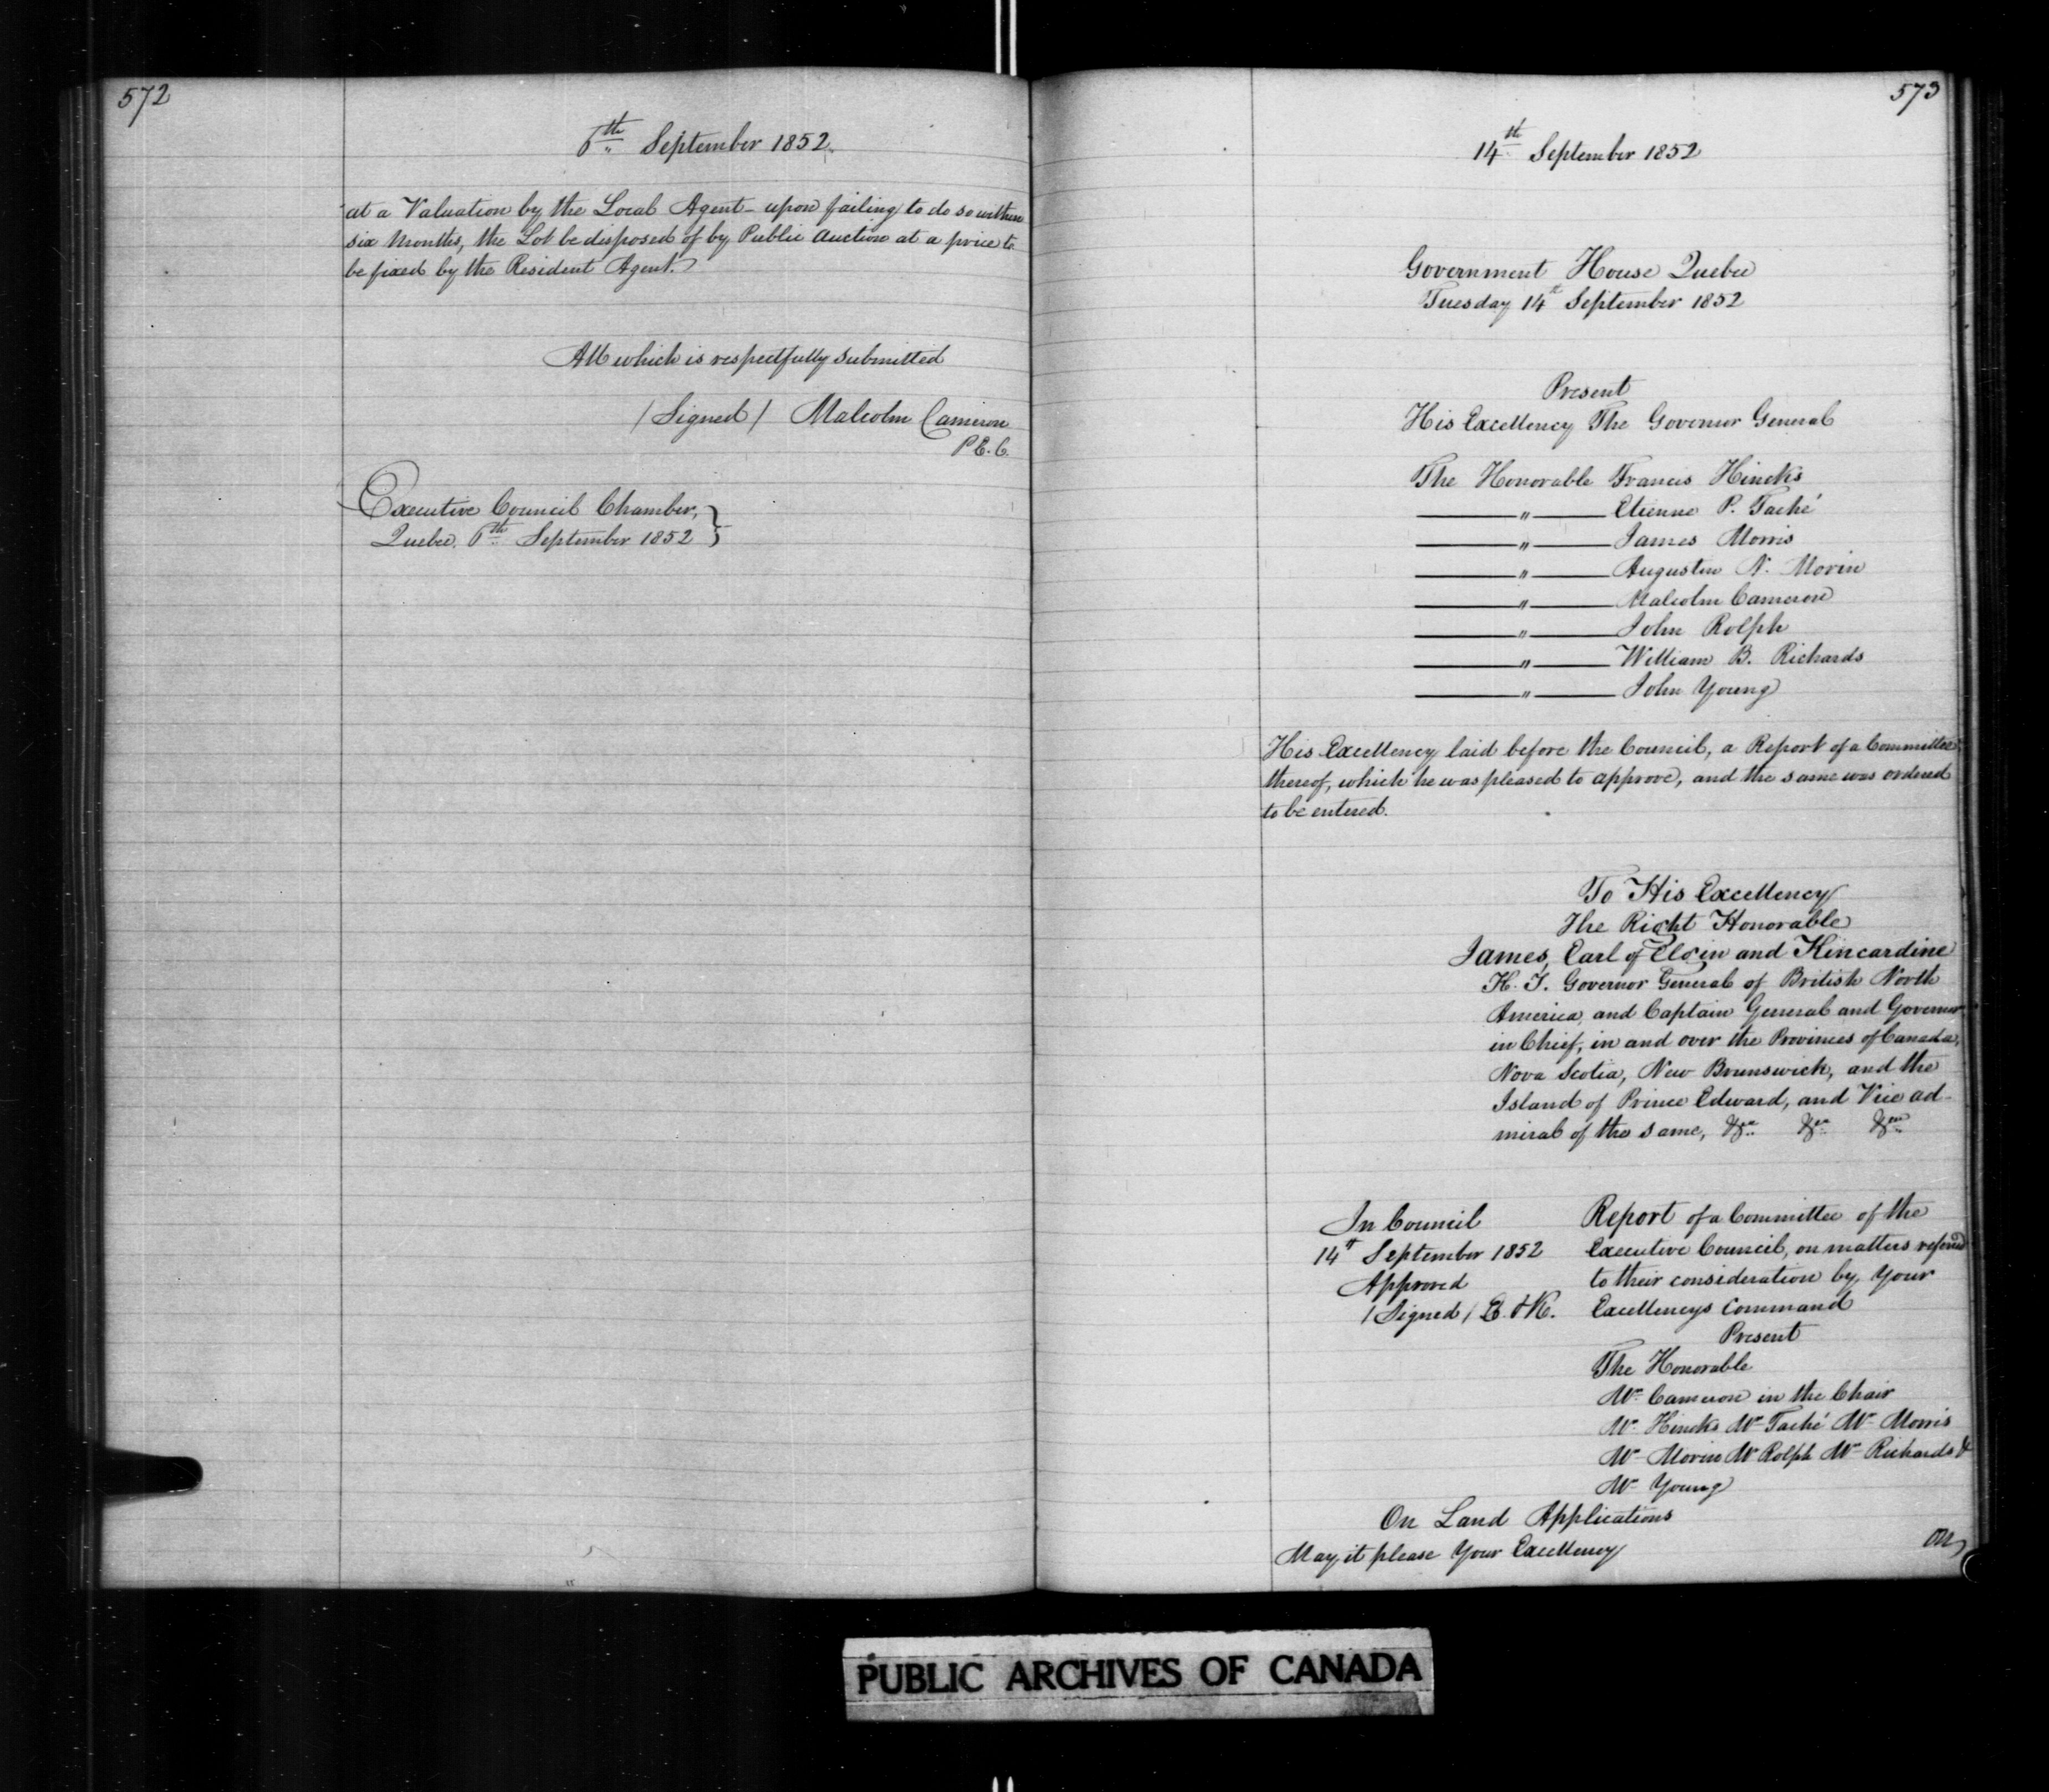 572
6th September 1852
at a Valuation by the Local Agent - upon failing to do so within
six Months, the Lot be disposed of by Public Auction at a price to
be fixed by the Resident Agent.
All which is respectfully submitted
/ Signed / Malcolm Cameron
P. E. C.
Executive Council Chamber, }
Quebec, 6th September 1852 }
573
14th September 1852
Government House Quebec
Tuesday 14th September 1852
Present
His Excellency The Governor General
The Honorable Francis Hincks
—— " —— Etienne P. Taché
—— " —— James Morris
—— " —— Augustin N. Morin
—— " —— Malcolm Cameron
—— " —— John Rolph
—— " —— William B. Richards
—— " —— John Young
His Excellency laid before the Council, a Report of a Committee
thereof, which he was pleased to approve, and the same was ordered
to be entered.
To His Excellency
The Right Honorable
James, Earl of Elgin and Kincardine
K. T. Governor General of British North
America, and Captain General and Governor
in Chief, in and over the Provinces of Canada,
Nova Scotia, New Brunswick, and the
Island of Prince Edward, and Vice ad-
miral of the same, &c &c &c
In Council
14th September 1852
Approved
/ Signed / E. & K.
Report of a Committee of the
Executive Council, on matters referred
to their consideration by Your
Excellencys Command
Present
The Honorable
Mr Cameron in the Chair
Mr Hincks Mr Taché Mr Morris
Mr Morin Mr Rolph Mr Richards &
Mr Young
On Land Applications
May it please Your Excellency
On
PUBLIC ARCHIVES OF CANADA